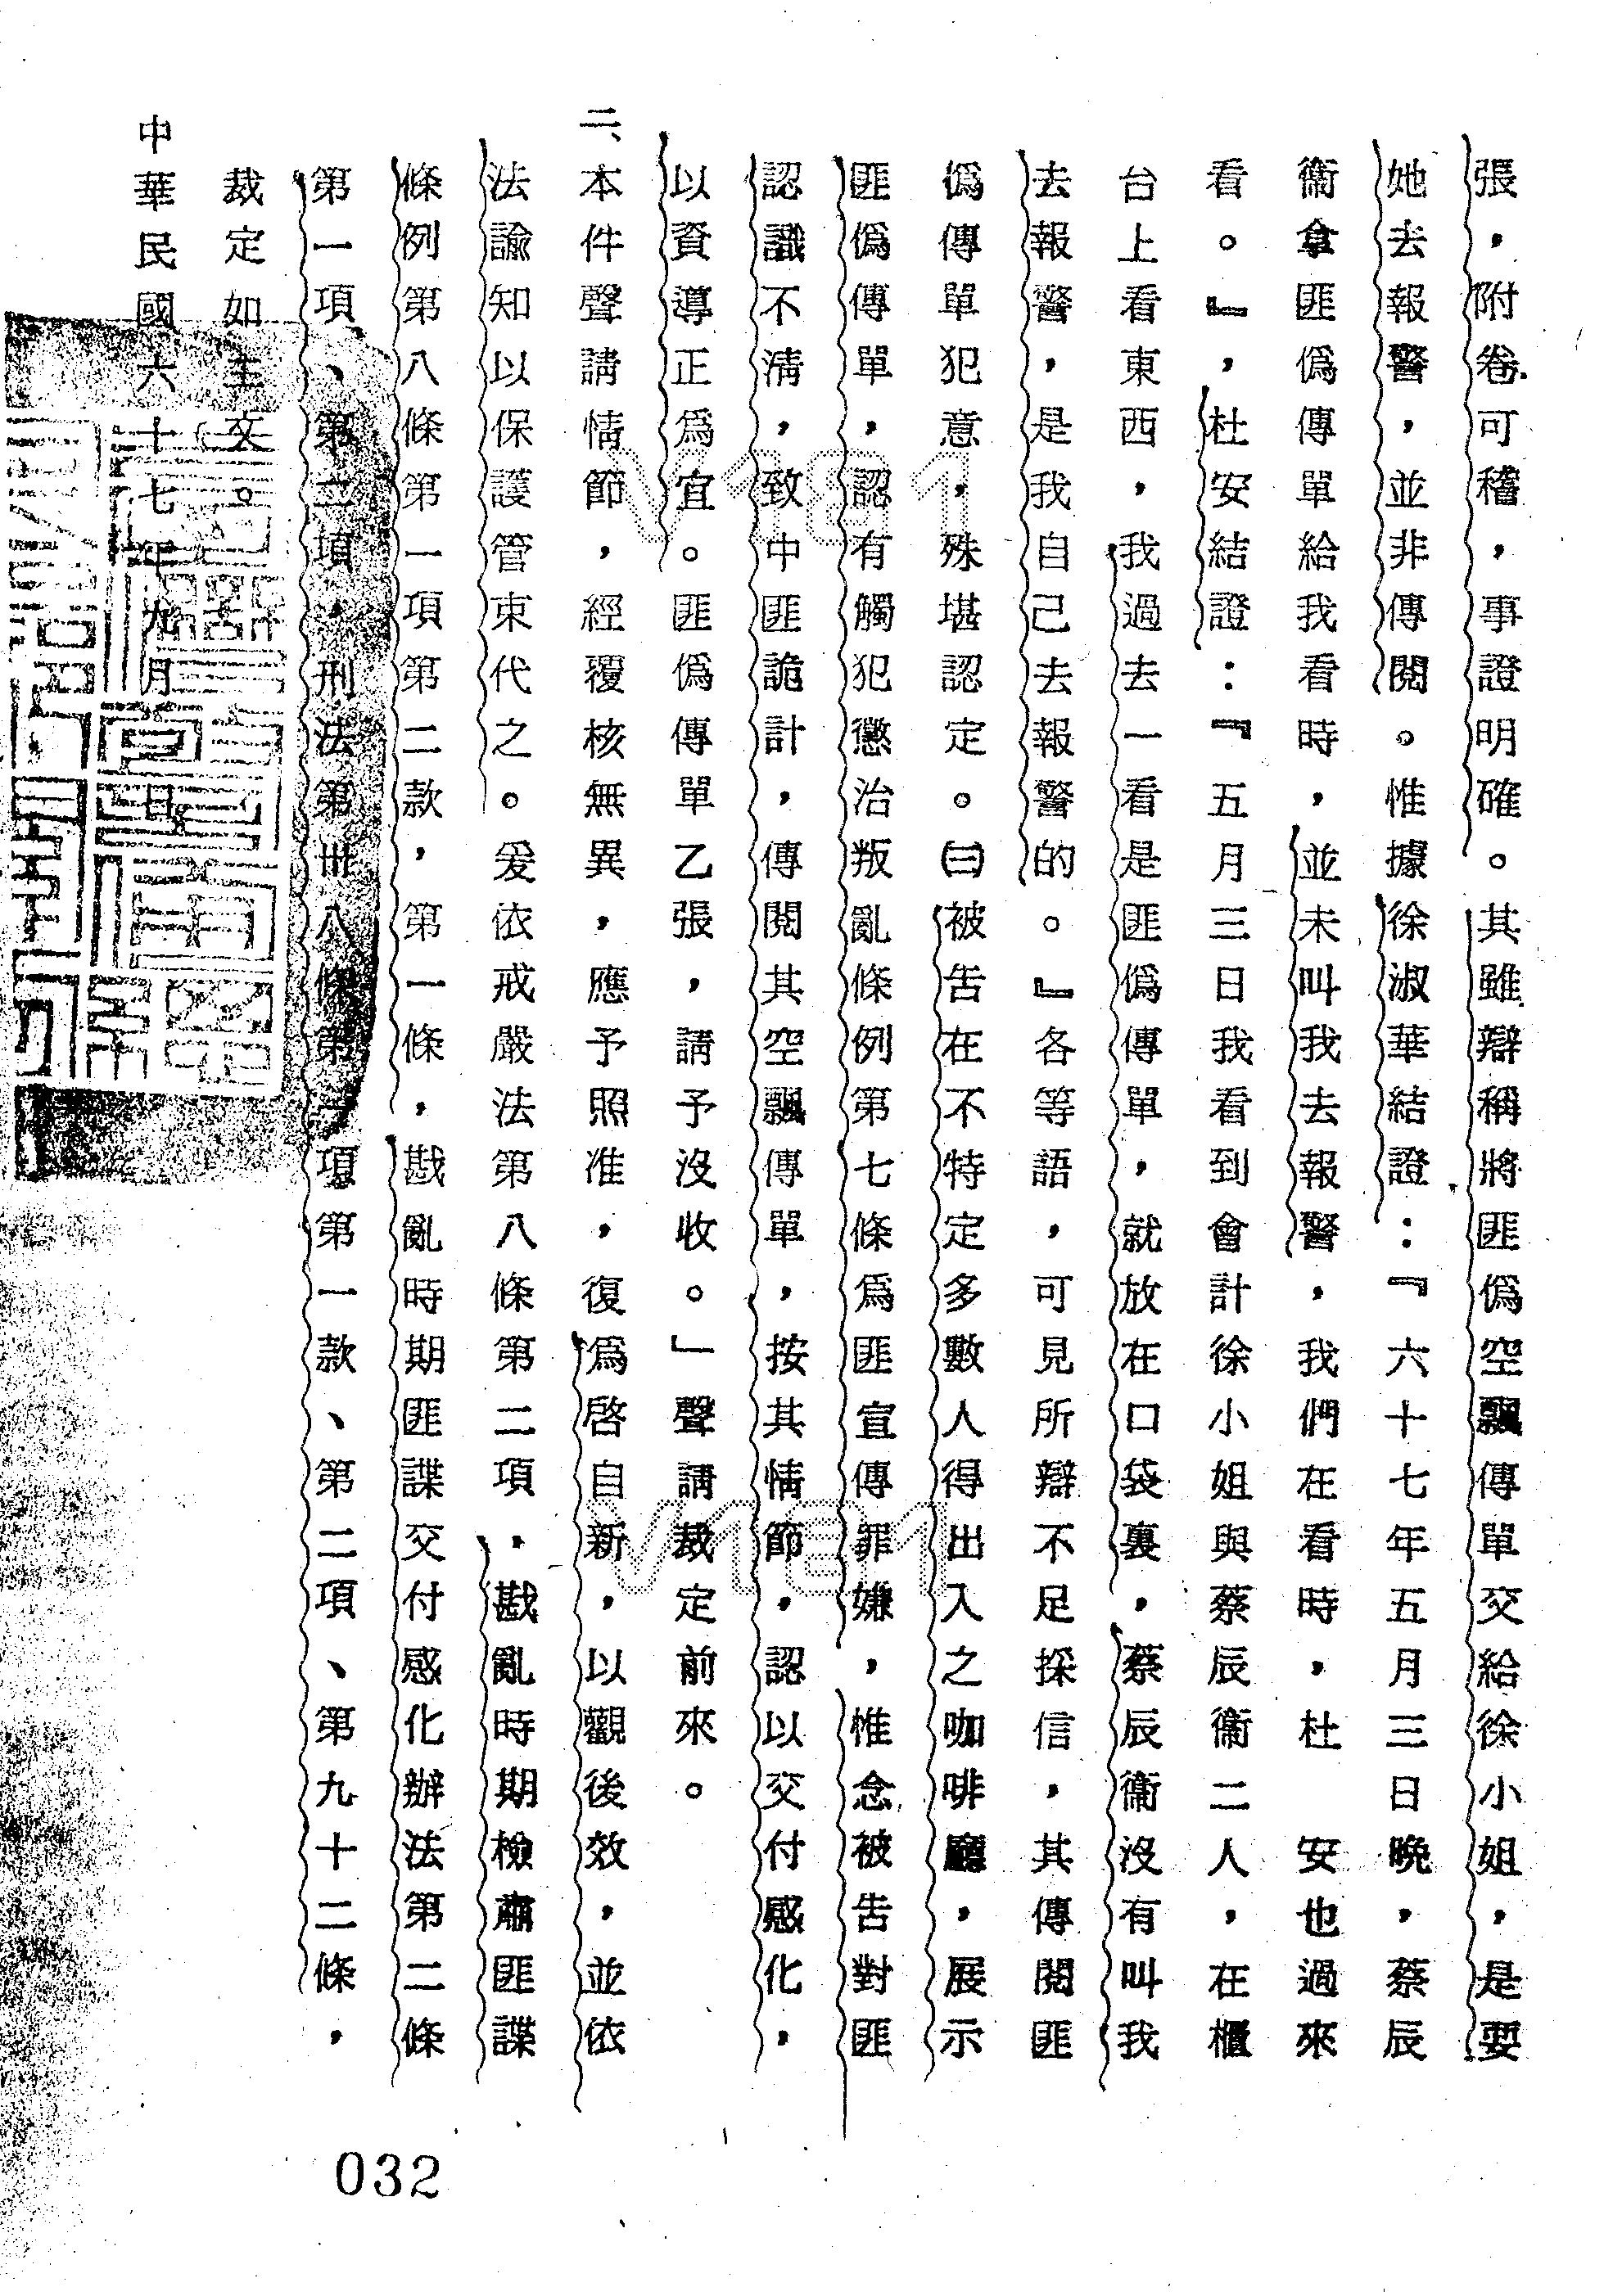 張，附卷可稽，事證明確。其雖辯稱將匪僞空飄傳單交給徐小姐，是要
她去報警，並非傳閱。惟據徐淑華結證：『六十七年五月三日晚，蔡辰
衞拿匪僞傳單給我看時，並未叫我去報警，我們在看時，杜安也過來
看。』，杜安結證：『五月三日我看到會計徐小姐與蔡辰衞二人，在櫃
台上看東西，我過去一看是匪僞傳單，就放在口袋裏，蔡辰衞沒有叫我
去報警，是我自己去報警的。』各等語，可見所辯不足採信，其傳閱匪
僞傳單犯意，殊堪認定。㈢被告在不特定多數人得出入之咖啡廳，展示
匪僞傳單，認有觸犯懲治叛亂條例第七條爲匪宣傳罪嫌，惟念被告對匪
認識不清，致中匪詭計，傳閱其空飄傳單，按其情節，認以交付感化，
以資導正爲宜。匪僞傳單乙張，請予沒收。」聲請裁定前來。
二、本件聲請情節，經覆核無異，應予照准，復爲啓自新，以觀後效，並依
法諭知以保護管束代之。爰依戒嚴法第八條第二項，戡亂時期檢肅匪諜
條例第八條第一項第二款，第一條，戡亂時期匪諜交付感化辦法第二條
第一項、第二項，刑法第卅八條第一項第一款、第二項、第九十二條，
裁定如主文。
中華民國六十七年九月 日
032
V181
V181